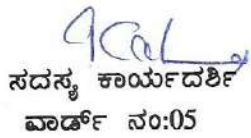 ಸದಸ್ಯ ಕಾರ್ಯದರ್ಶಿ
ವಾರ್ಡ್ ನಂ:05